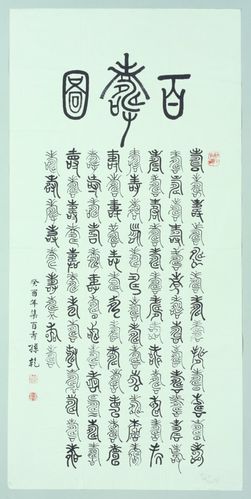 百壽圖
壽壽壽壽壽壽壽壽壽壽壽壽壽
壽壽壽壽壽壽壽壽壽壽壽壽壽
壽壽壽壽壽壽壽壽壽壽壽壽壽
壽壽壽壽壽壽壽壽壽壽壽壽壽
壽壽壽壽壽壽壽壽壽壽壽壽壽
壽壽壽壽壽壽壽壽壽壽壽壽壽
壽壽壽壽壽壽壽壽壽壽壽壽壽
壽壽壽壽壽壽壽壽壽
癸酉年集百寿 孫乾